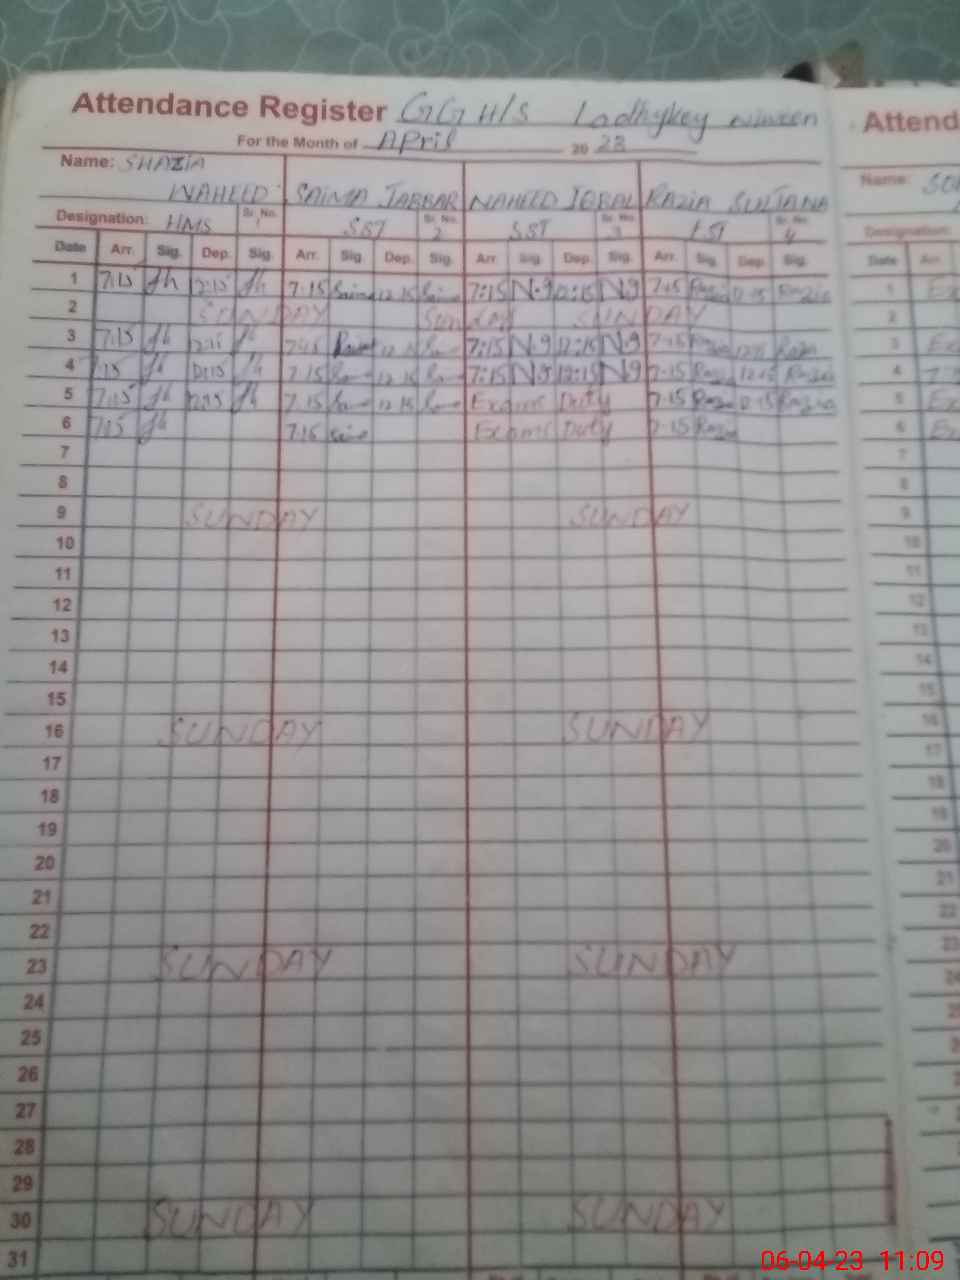 Attendance Register GGH/S Ladhykey
For the Month of April 2023
Name: SHAZIA WAHEED SAIMA JABBAR NAHEED IQBAL RAZIA SULTANA
Designation: HMS Sr. No. 1 SST Sr. No. 2 SST Sr. No. 3 EST Sr. No. 4
Date Arr. Sig. Dep. Sig. Arr. Sig. Dep. Sig. Arr. Sig. Dep. Sig. Arr. Sig. Dep. Sig.
1 7:15 12:15 7.15 12.15 7:15 N.9 12:15 N9 7.15 Razia 12.15 Razia
2 SUNDAY SUNDAY SUNDAY
3 7:15 12:15 7:15 N.9 12:15 N.9 7.15 Razia
4 7:15 12:15 7.15 12.15 7:15 N.9 12:15 N9 7.15 Razia 12.15 Razia
5 7:15 12:15 7.15 12.15 Exams Duty 7.15 Razia 12.15 Razia
6 7:15 7.15 Exams Duty 7.15 Razia
7
8
9 SUNDAY SUNDAY
10
11
12
13
14
15
16 SUNDAY SUNDAY
17
18
19
20
21
22
23 SUNDAY SUNDAY
24
25
26
27
28
29
30 SUNDAY SUNDAY
31
Attend
Name:
Designation:
Date Arr.
1
2
3
4
5
6
7
8
9
10
11
12
13
14
15
16
17
18
19
20
21
22
23
24
06-04-23 11:09